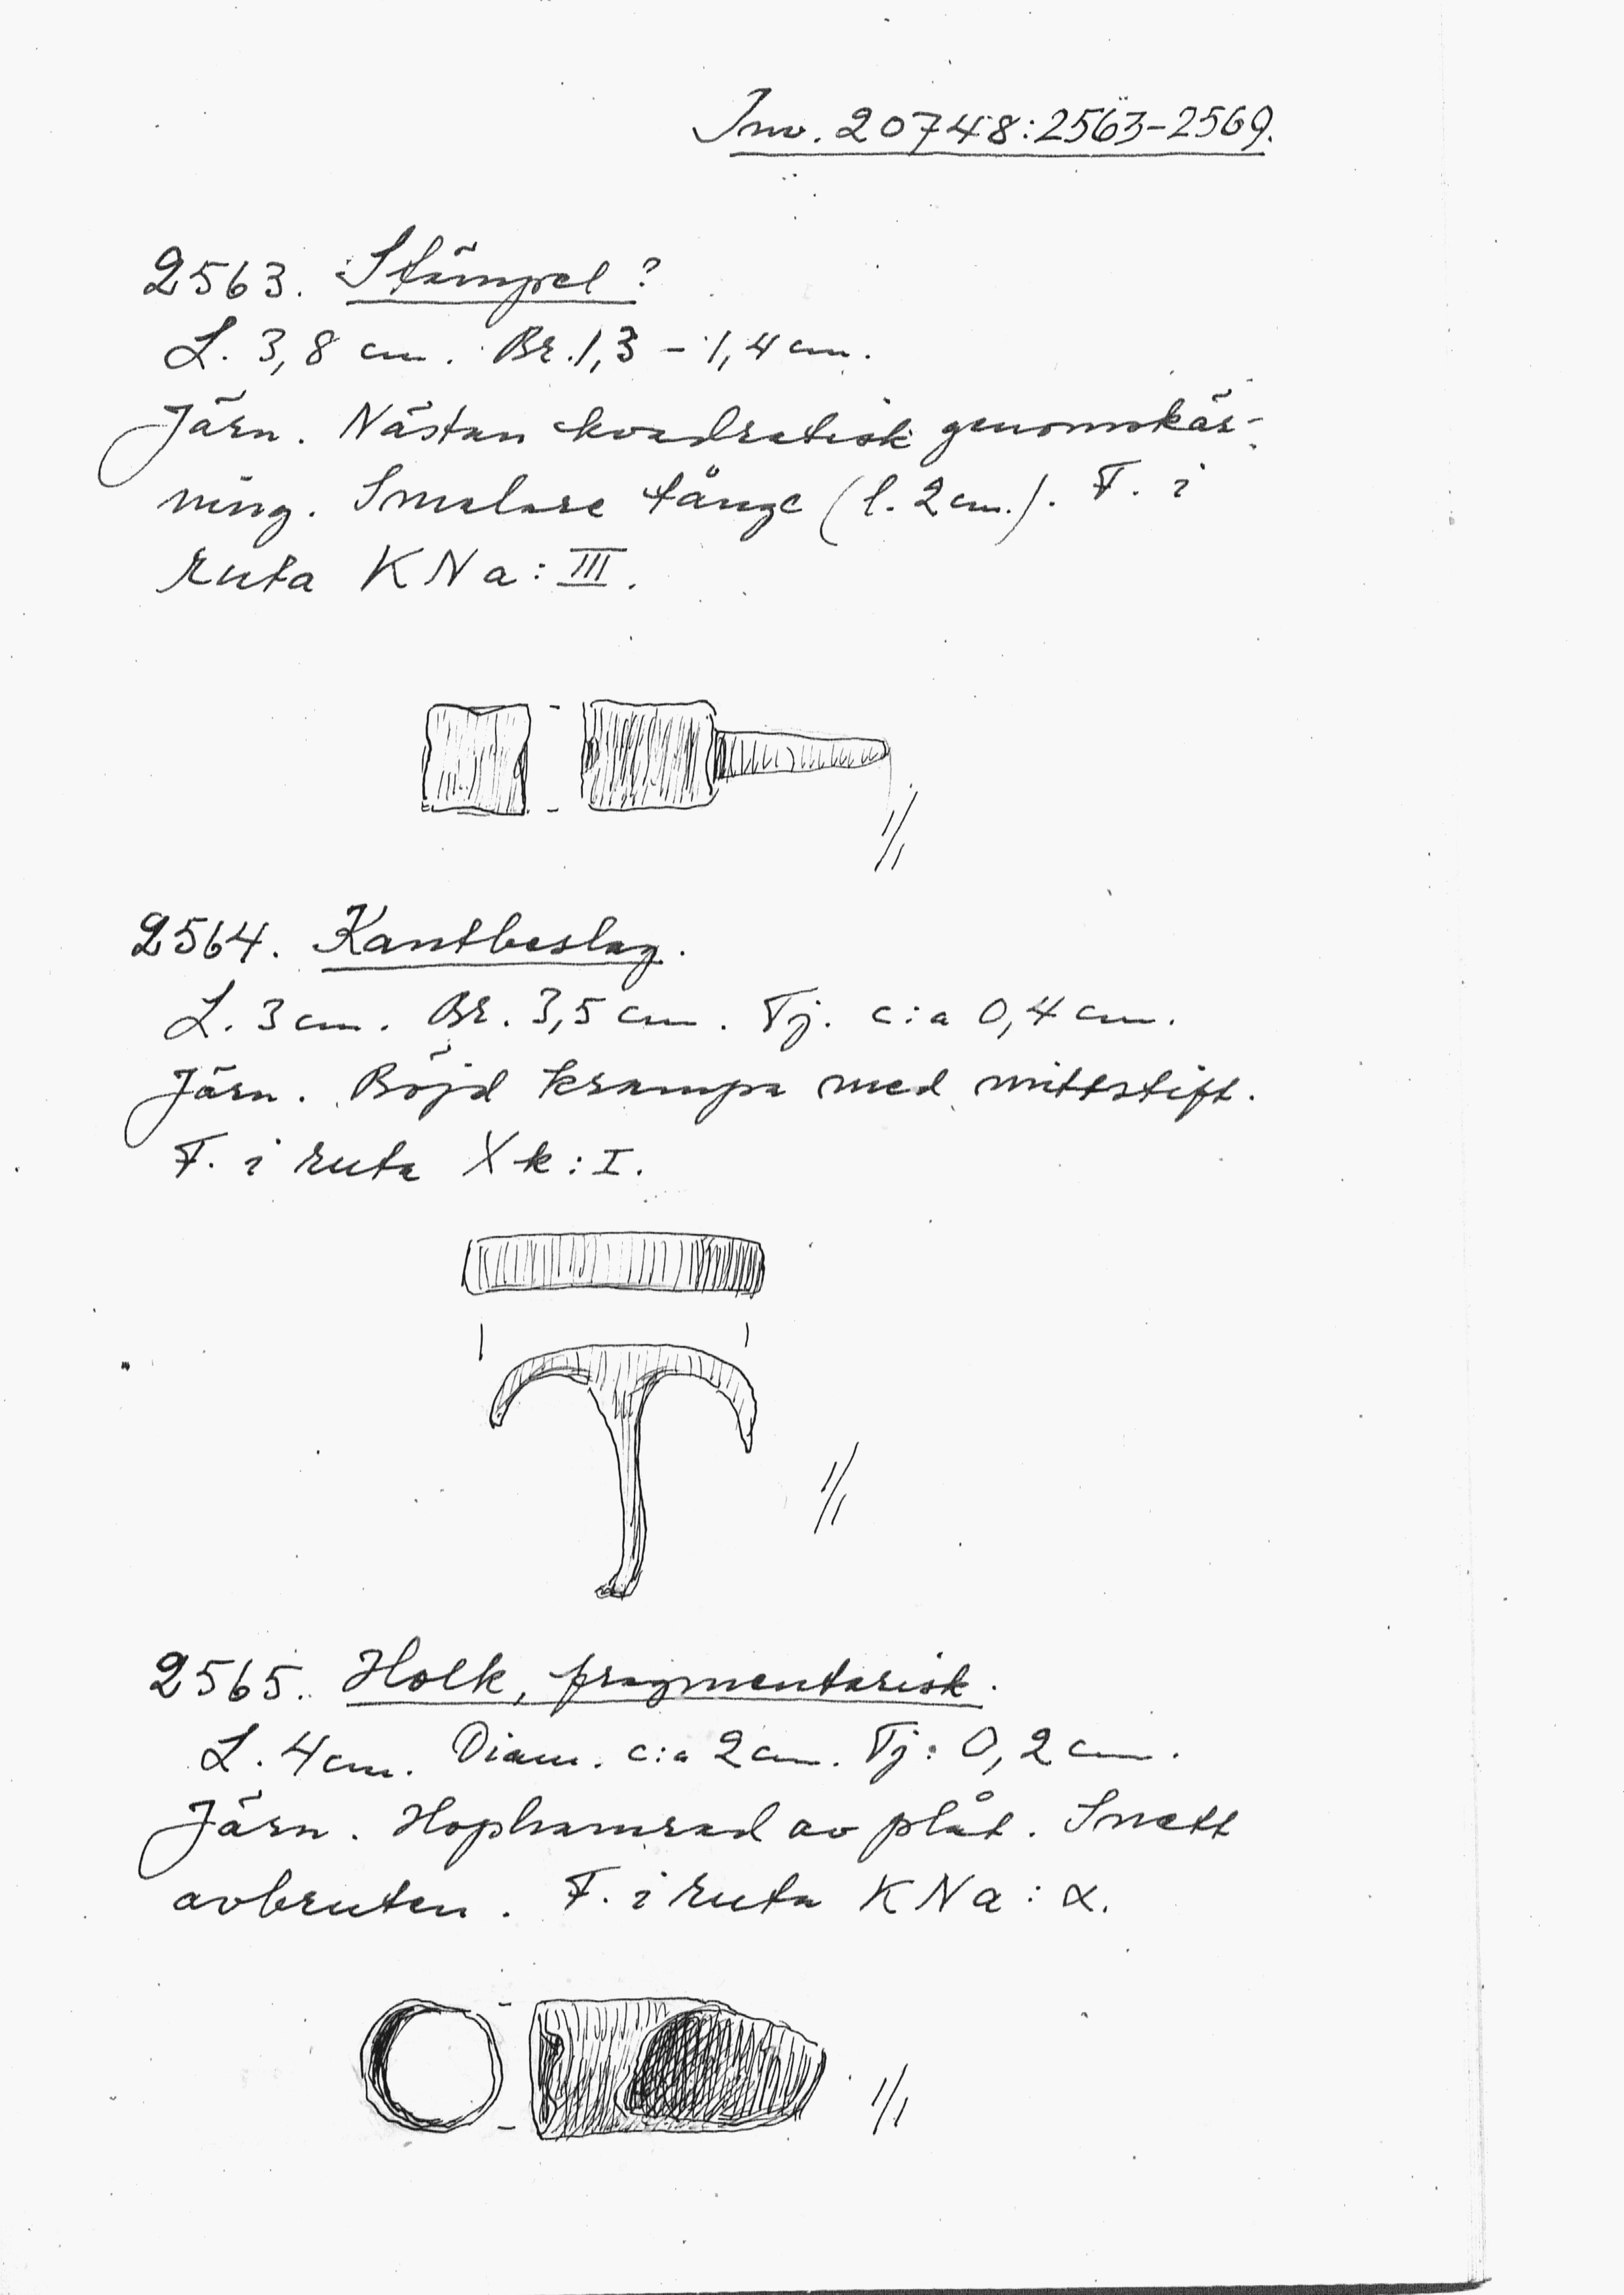 Inv. 20748:2563-2569.
2563. Stämpel?
L. 3,8 cm. Br. 1,3 - 1,4 cm.
Järn. Nästan kvadratisk genomskär-
ning. Smalare tånge (l. 2 cm.). F. i
ruta KNa: III.
1/1
2564. Kantbeslag.
L. 3 cm. Br. 3,5 cm. Tj. c:a 0,4 cm.
Järn. Böjd krampa med mittstift.
F. i ruta Xk: I.
1/1
2565. Holk, fragmentarisk.
L. 4 cm. Diam. c:a 2 cm. Tj: 0,2 cm.
Järn. Hophamrad av plåt. Snett
avbruten. F. i ruta KNa: α.
1/1